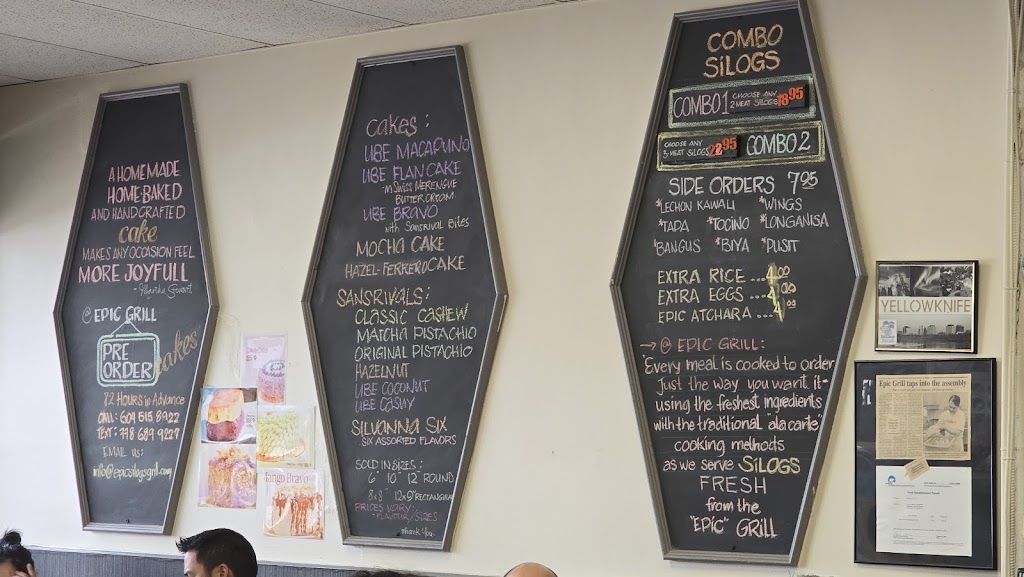 A HOMEMADE
HOME-BAKED
AND HANDCRAFTED
cake
MAKES ANY OCCASION FEEL
MORE JOYFULL
@ EPIC GRILL
PRE
ORDER
cakes
72 HOURS in Advance
CALL: 604 515 8922
TEXT: 778 689 9227
EMAIL us:
info@epicsilogsgrill.com
Tango Bravo
Cakes:
UBE MACAPUNO
UBE FLAN CAKE
in SWISS MERENGUE
BUTTERCREAM
UBE BRAVO
with Sansrival Bites
MOCHA CAKE
HAZEL-FERRERO CAKE
SANSRIVALS:
CLASSIC CASHEW
MATCHA PISTACHIO
ORIGINAL PISTACHIO
HAZELNUT
UBE COCONUT
UBE CASUY
SILVANNA SIX
SIX ASSORTED FLAVORS
SOLD IN SIZES:
6" 10" 12 ROUND
8x8" 12x9" RECTANGULAR
PRICES VARY:
-FLAVOUR/SIZES
Thank You
COMBO
SiLOGS
COMBO 1 CHOOSE ANY 2 MEAT SILOGS 18.95
CHOOSE ANY 3-MEAT SILOGS 22.95 COMBO 2
SIDE ORDERS 7.95
*LECHON KAWALI *WINGS
*TAPA *TOCINO *LONGANISA
*BANGUS *BIYA *PUSIT
EXTRA RICE ...4.00
EXTRA EGGS ...4.00
EPIC ATCHARA ...4.00
→ @ EPIC GRILL:
"Every meal is cooked to order
Just the way you want it-
using the freshest ingredients
with the traditional "ala carte"
cooking methods
as we serve SiLOGS
FRESH
from the
"EPIC" GRILL
YELLOWKNIFE
Epic Grill taps into the assembly